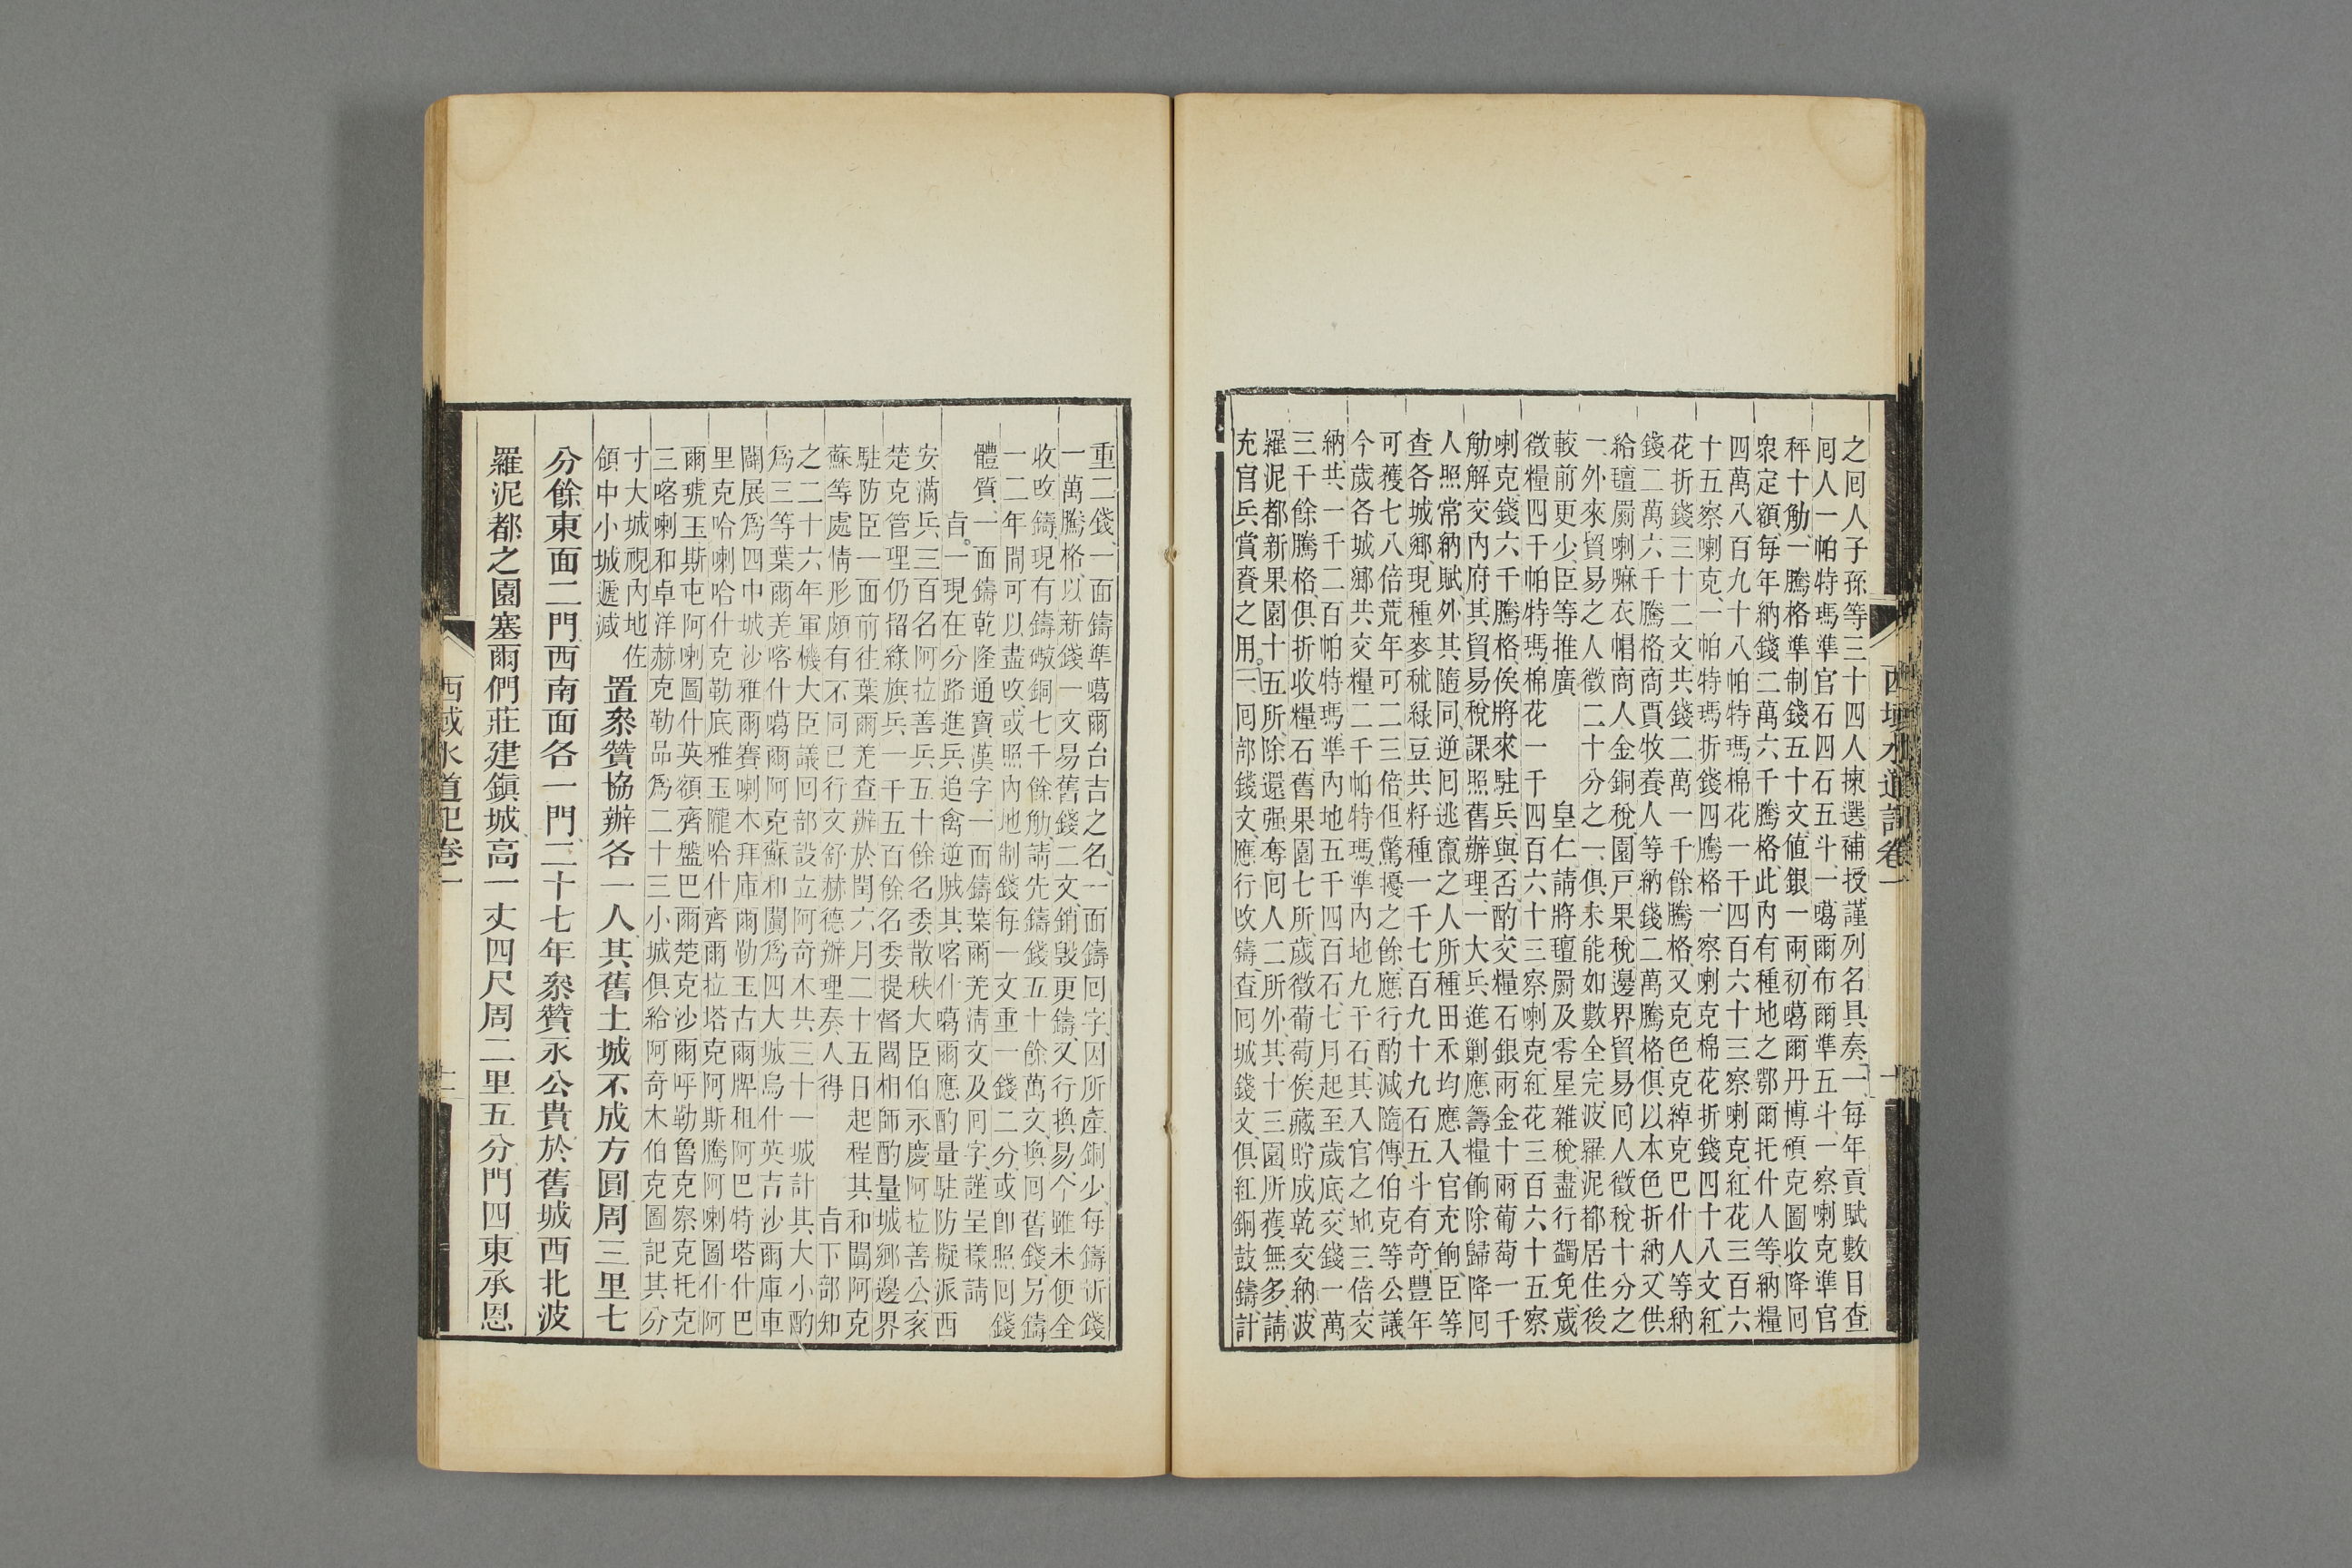 之囘人子孫等三十四人揀選補授謹列名具奏一每年貢賦數目查
囘人一帕特瑪準官石四石五斗一噶爾布爾準五斗一察喇克準官
秤十觔一騰格準制錢五十文値銀一兩初噶爾丹博碩克圖收降囘
衆定額每年納錢二萬六千騰格此內有種地之鄂爾托什人等納糧
四萬八百九十八帕特瑪棉花一千四百六十三察喇克紅花三百六
十五察喇克一帕特瑪折錢四騰格一察喇克棉花折錢四十八文紅
花折錢三十二文共錢二萬一千餘騰格又克色克綽克巴什人等納
錢二萬六千騰格商賈牧養人等納錢二萬騰格俱以本色折納又供
給氊罽喇嘛衣帽商人金銅稅園戸果稅邊界貿易囘人徵稅十分之
一外來貿易之人徵二十分之一俱未能如數全完波羅泥都居住後
較前更少臣等推廣　　皇仁請將氊罽及零星雜稅盡行蠲免歲
徵糧四千帕特瑪棉花一千四百六十三察喇克紅花三百六十五察
喇克錢六千騰格俟將來駐兵與否酌交糧石銀兩金十兩葡萄一千
觔解交內府其貿易稅課照舊辦理一大兵進剿應籌糧餉除歸降囘
人照常納賦外其隨同逆囘逃竄之人所種田禾均應入官充餉臣等
查各城鄉現種麥秫緑豆共籽種一千七百九十九石五斗有奇豐年
可獲七八倍荒年可二三倍但驚擾之餘應行酌減隨傳伯克等公議
今歲各城鄉共交糧二千帕特瑪準內地九千石其入官之地三倍交
納共一千二百帕特瑪準內地五千四百石七月起至歲底交錢一萬
三千餘騰格俱折收糧石舊果園七所歲徵葡萄俟藏貯成乾交納波
羅泥都新果園十五所除還强奪囘人二所外其十三園所獲無多請
充官兵賞賚之用一囘部錢文應行改鑄查囘城錢文俱紅銅鼓鑄計
西域水道記卷一
重二錢一面鑄準噶爾台吉之名一面鑄囘字因所產銅少每鑄新錢
一萬騰格以新錢一文易舊錢二文銷毀更鑄又行換易今雖未便全
收改鑄現有鑄礮銅七千餘觔請先鑄錢五十餘萬文換囘舊錢另鑄
一二年間可以盡改或照內地制錢每一文重一錢二分或卽照囘錢
體質一面鑄乾隆通寶漢字一面鑄葉爾羌淸文及囘字謹呈樣請
　　㫖一現在分路進兵追禽逆賊其喀什噶爾應酌量駐防擬派西
安滿兵三百名阿拉善兵五十餘名委散秩大臣伯永慶阿拉善公衮
楚克管理仍留綠旗兵一千五百餘名委提督閻相師酌量城鄉邊界
駐防臣一面前往葉爾羌查辦於閏六月二十五日起程其和闐阿克
蘇等處情形頗有不同已行文舒赫德辦理奏人得　　㫖下部知
之二十六年軍機大臣議囘部設立阿奇木共三十一城計其大小酌
爲三等葉爾羌喀什噶爾阿克蘇和闐爲四大城烏什英吉沙爾庫車
闢展爲四中城沙雅爾賽喇木拜庫爾勒玉古爾牌租阿巴特塔什巴
里克哈喇哈什克勒底雅玉隴哈什齊爾拉塔克阿斯騰阿喇圖什阿
爾琥玉斯屯阿喇圖什英額齊盤巴爾楚克沙爾呼勒魯克察克托克
三喀喇和卓洋赫克勒品爲二十三小城俱給阿奇木伯克圖記其分
寸大城視內地佐
領中小城遞減
置叅贊協辦各一人其舊土城不成方圓周三里七
分餘東面二門西南面各一門二十七年叅贊永公貴於舊城西北波
羅泥都之園塞爾們莊建鎭城高一丈四尺周二里五分門四東承恩
西域水道記卷一